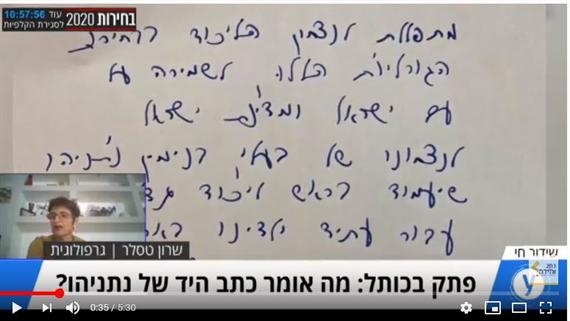 עוד 10:57:56
לסגירת הקלפיות
בחירות 2020
מתפללת לנצחון הליכוד בבחירות
הגורליות הללו לשמירה על
עם ישראל ומדינת ישראל
לנצחונו של בעלי בנימין נתניהו
שיעמוד בראש ליכוד
עבור עתיד ילדינו
שרון טסלר | גרפולוגית
שידור חי
פתק בכותל: מה אומר כתב היד של נתניהו?
0:35 / 5:30